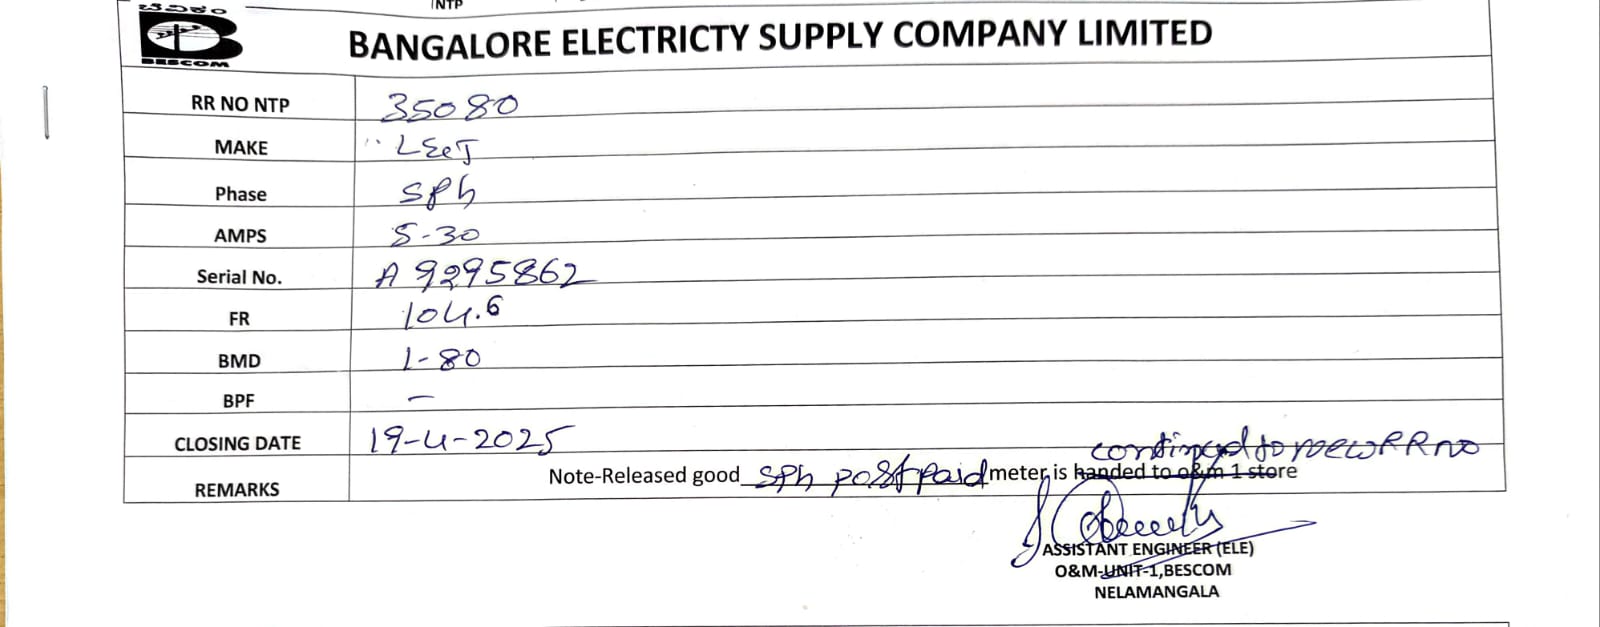 NTP
ಬೆವಿಕಂ
BESCOM
BANGALORE ELECTRICTY SUPPLY COMPANY LIMITED
RR NO NTP 35080
MAKE L&T
Phase SPh
AMPS 5-30
Serial No. A 9295862
FR 104.6
BMD 1-80
BPF -
CLOSING DATE 19-4-2025
continued to new RR no
REMARKS Note-Released good SPh postpaid meter is handed to o&m 1 store
ASSISTANT ENGINEER (ELE)
O&M-UNIT-1,BESCOM
NELAMANGALA